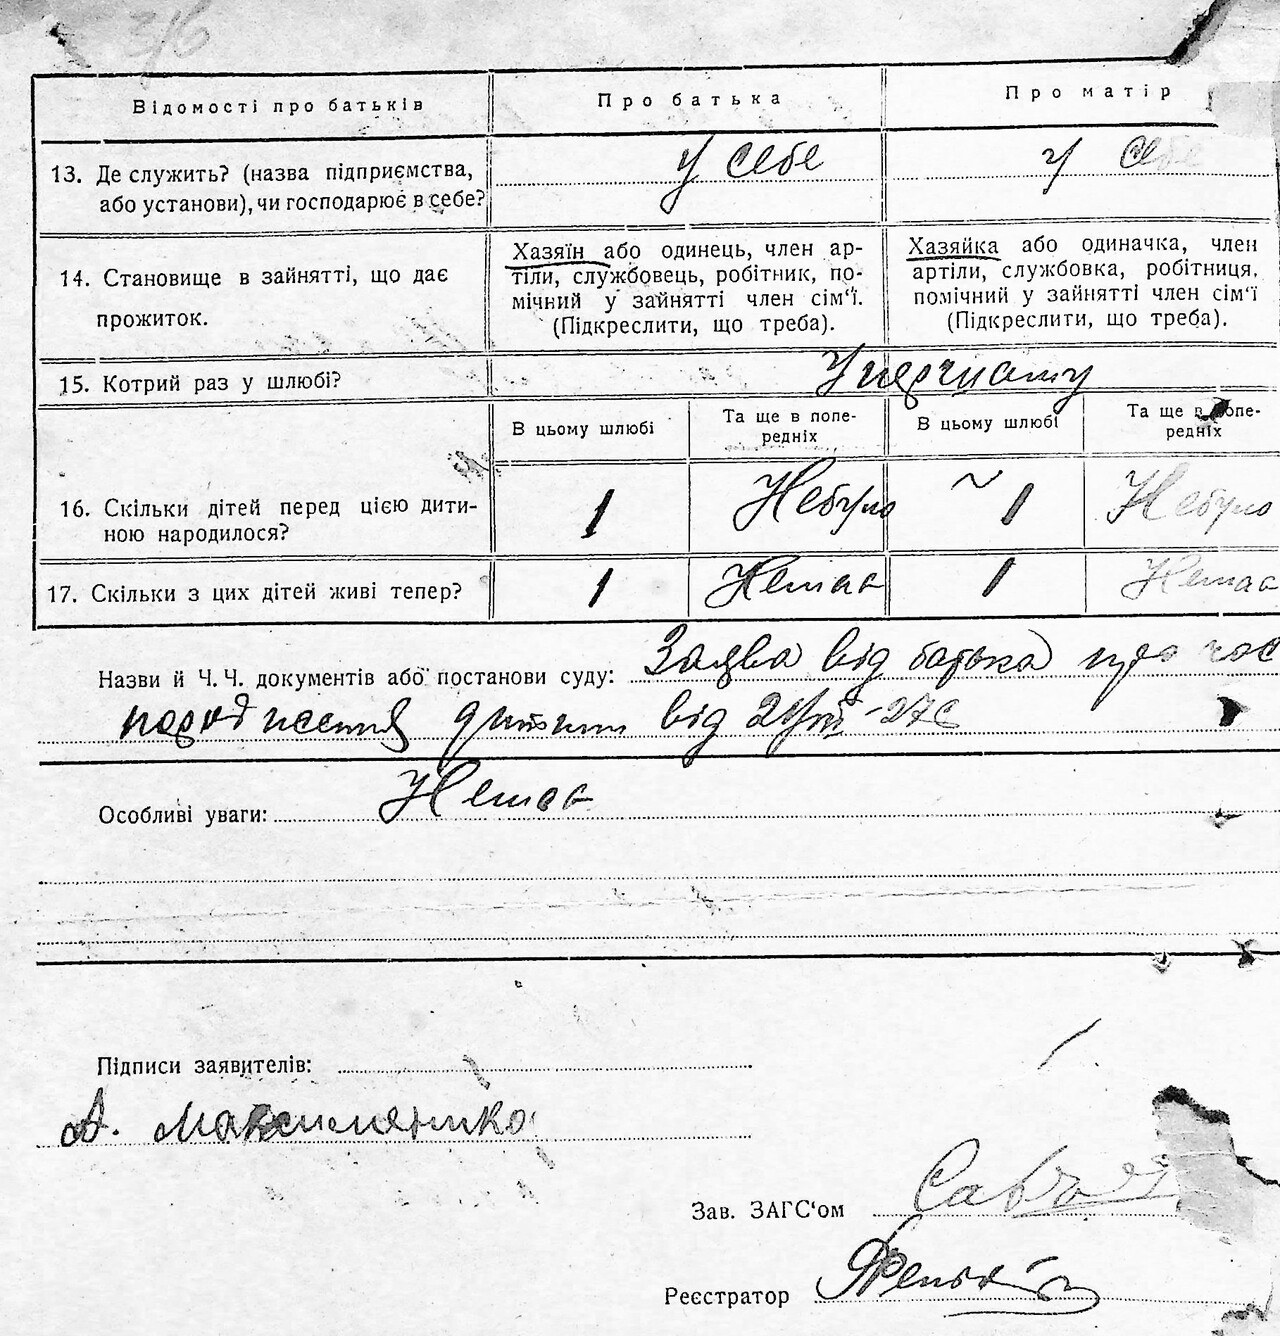 316
Відомості про батьків Про батька Про матір
13. Де служить? (назва підприємства, або установи), чи господарює в себе? у себе у себе
14. Становище в зайнятті, що дає прожиток.
Хазяїн або одинець, член ар-
тіли, службовець, робітник, по-
мічний у зайнятті член сім‘ї.
(Підкреслити, що треба).
Хазяйка або одиначка, член
артіли, службовка, робітниця,
помічний у зайнятті член сім‘ї
(Підкреслити, що треба).
15. Котрий раз у шлюбі?
В цьому шлюбі
Та ще в попе-
редніх
В цьому шлюбі
Та ще в попе-
редніх
16. Скільки дітей перед цією дити-
ною народилося?
1 Небуло 1 Небуло
17. Скільки з цих дітей живі тепер? 1 Немає 1 Немає
Назви й Ч. Ч. документів або постанови суду: Заява від батька про час
народження дитини від
Особливі уваги: Немає
Підписи заявителів:
А. Максименко
Зав. ЗАГС‘ом
Реєстратор